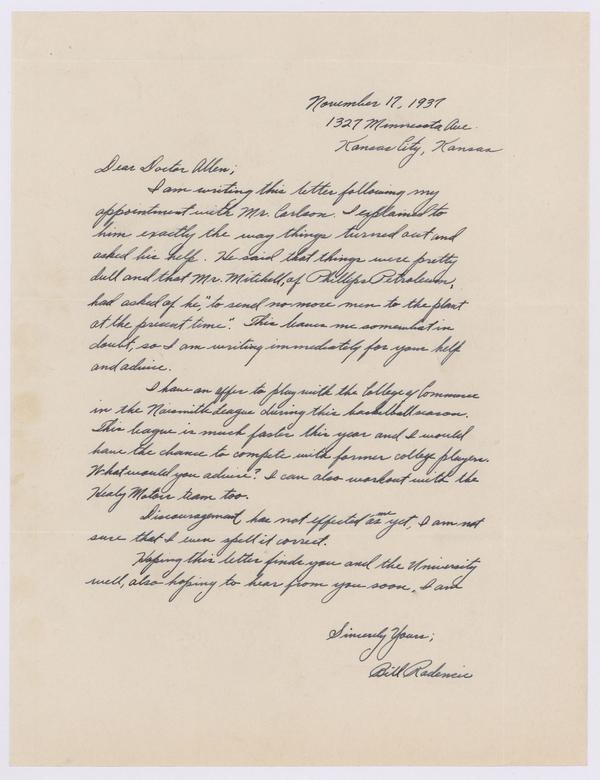 November 17, 1937
1327 Minnesota Ave.
Kansas City, Kansas
Dear Doctor Allen;
I am writing this letter following my
appointment with Mr. Carlson. I explained to
him exactly the way things turned out and
asked his help. He said that things were pretty
dull and that Mr. Mitchell, of Phillips Petroleum,
had asked of he, "to send no more men to the plant
at the present time". This leaves me somewhat in
doubt, so I am writing immediately for your help
and advice.
I have an offer to play with the College of Commerce
in the Naismith League during this basketball season.
This league is much faster this year and I would
have the chance to compete with former college players.
What would you advise? I can also workout with the
Healy Motors team too.
Discouragement has not effected me as yet, I am not
sure that I even spell it correct.
Hoping this letter finds you and the University
well, also hoping to hear from you soon, I am
Sincerely Yours;
Bill Radencic